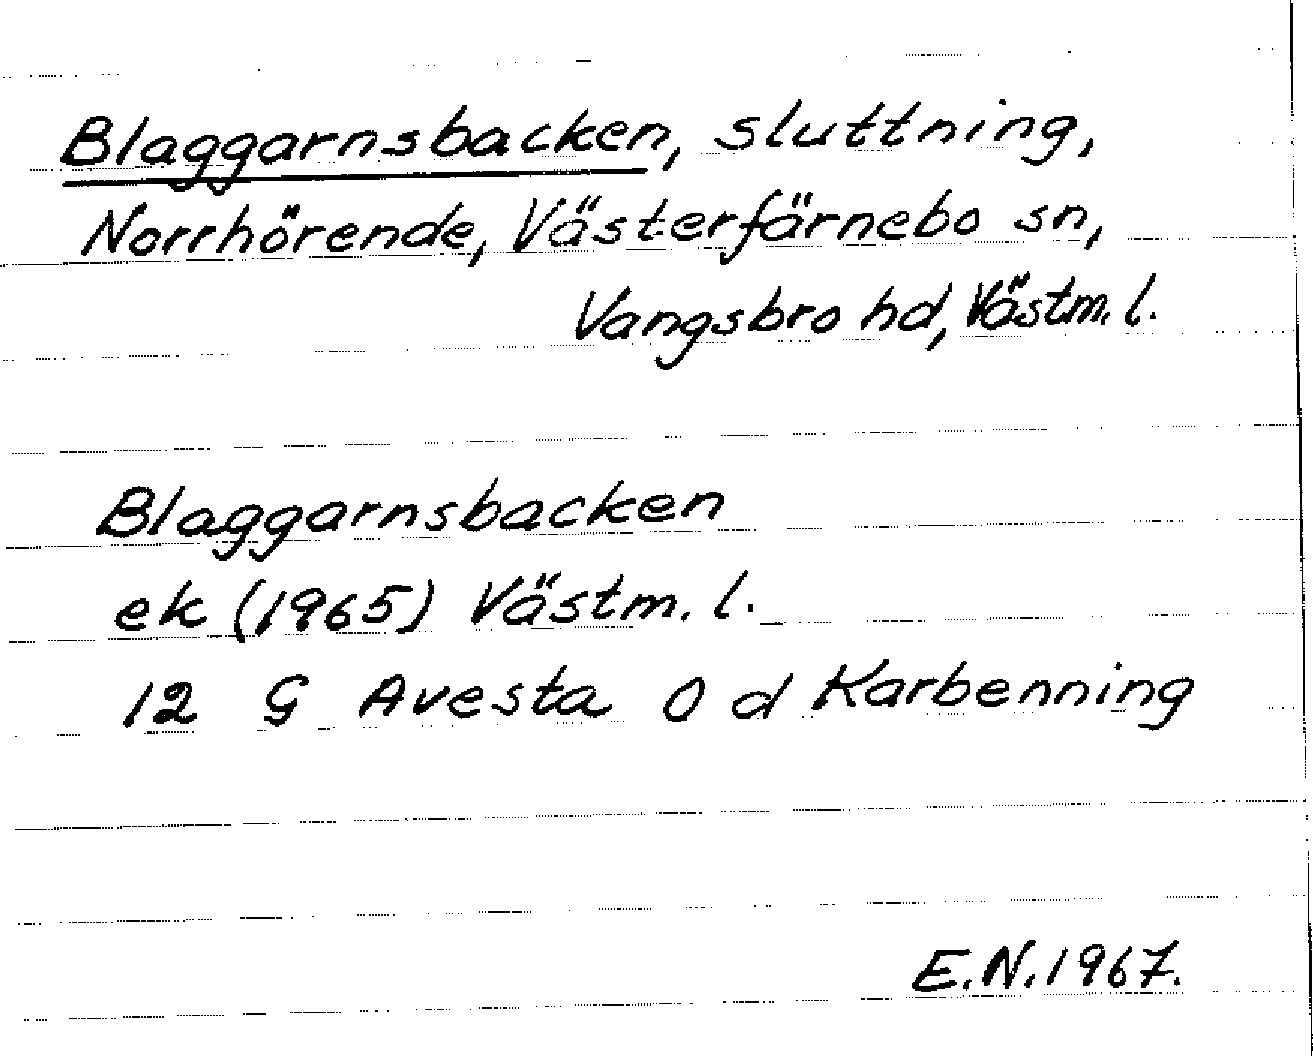 Blaggarnsbacken, sluttning,
Norrhörende, Västerfärnebo sn,
Vangsbro hd, Västm. l.
Blaggarnsbacken
ek (1965) Västm. l.
12 G Avesta O d Karbenning
E.N. 1967.